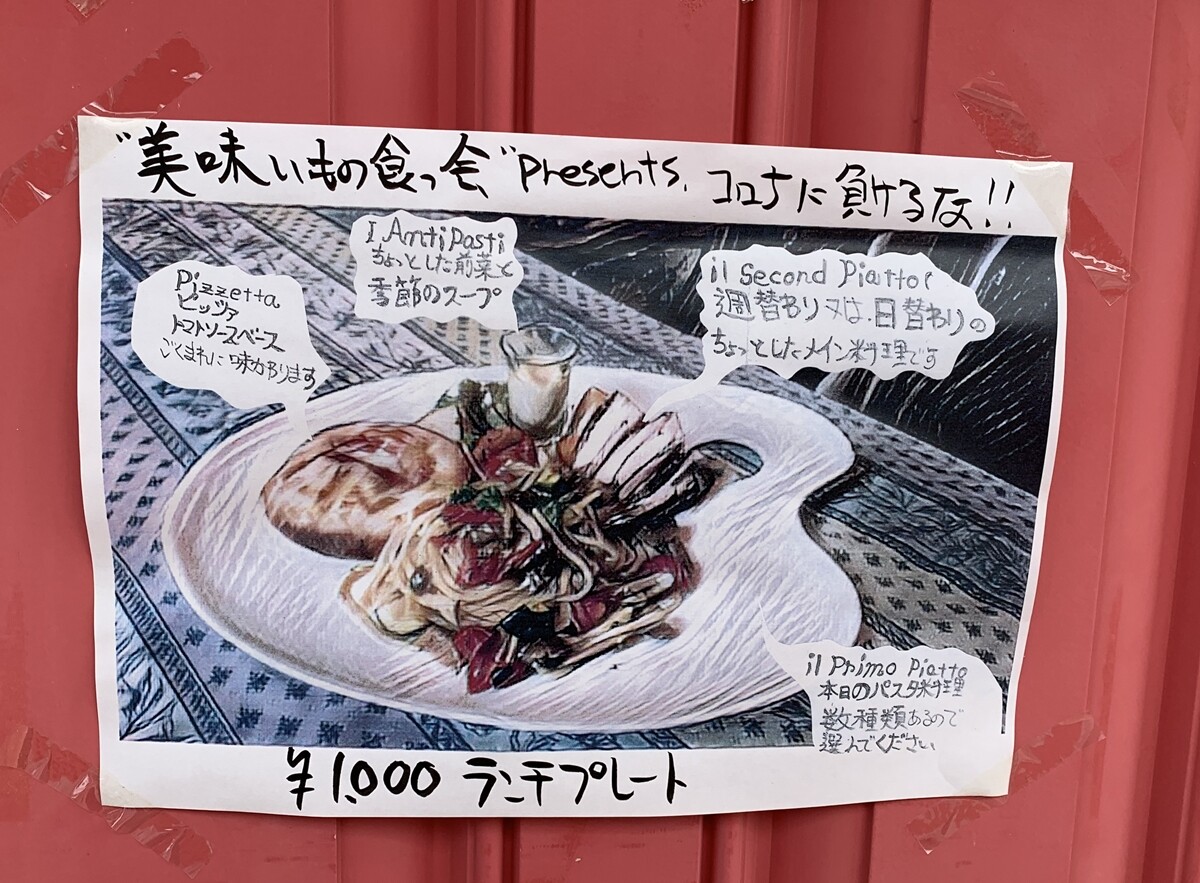 "美味いもの食っ会" presents, コロナに負けるな!!
I Antipasti
ちょっとした前菜と
季節のスープ
Pizzetta
ピッツァ
トマトソースベース
ごくまれに味かわります
il Second Piatto!
週替わり又は、日替わりの
ちょっとしたメイン料理です
il Primo Piatto
本日のパスタ料理
数種類あるので
選んでください
¥1.000 ランチプレート